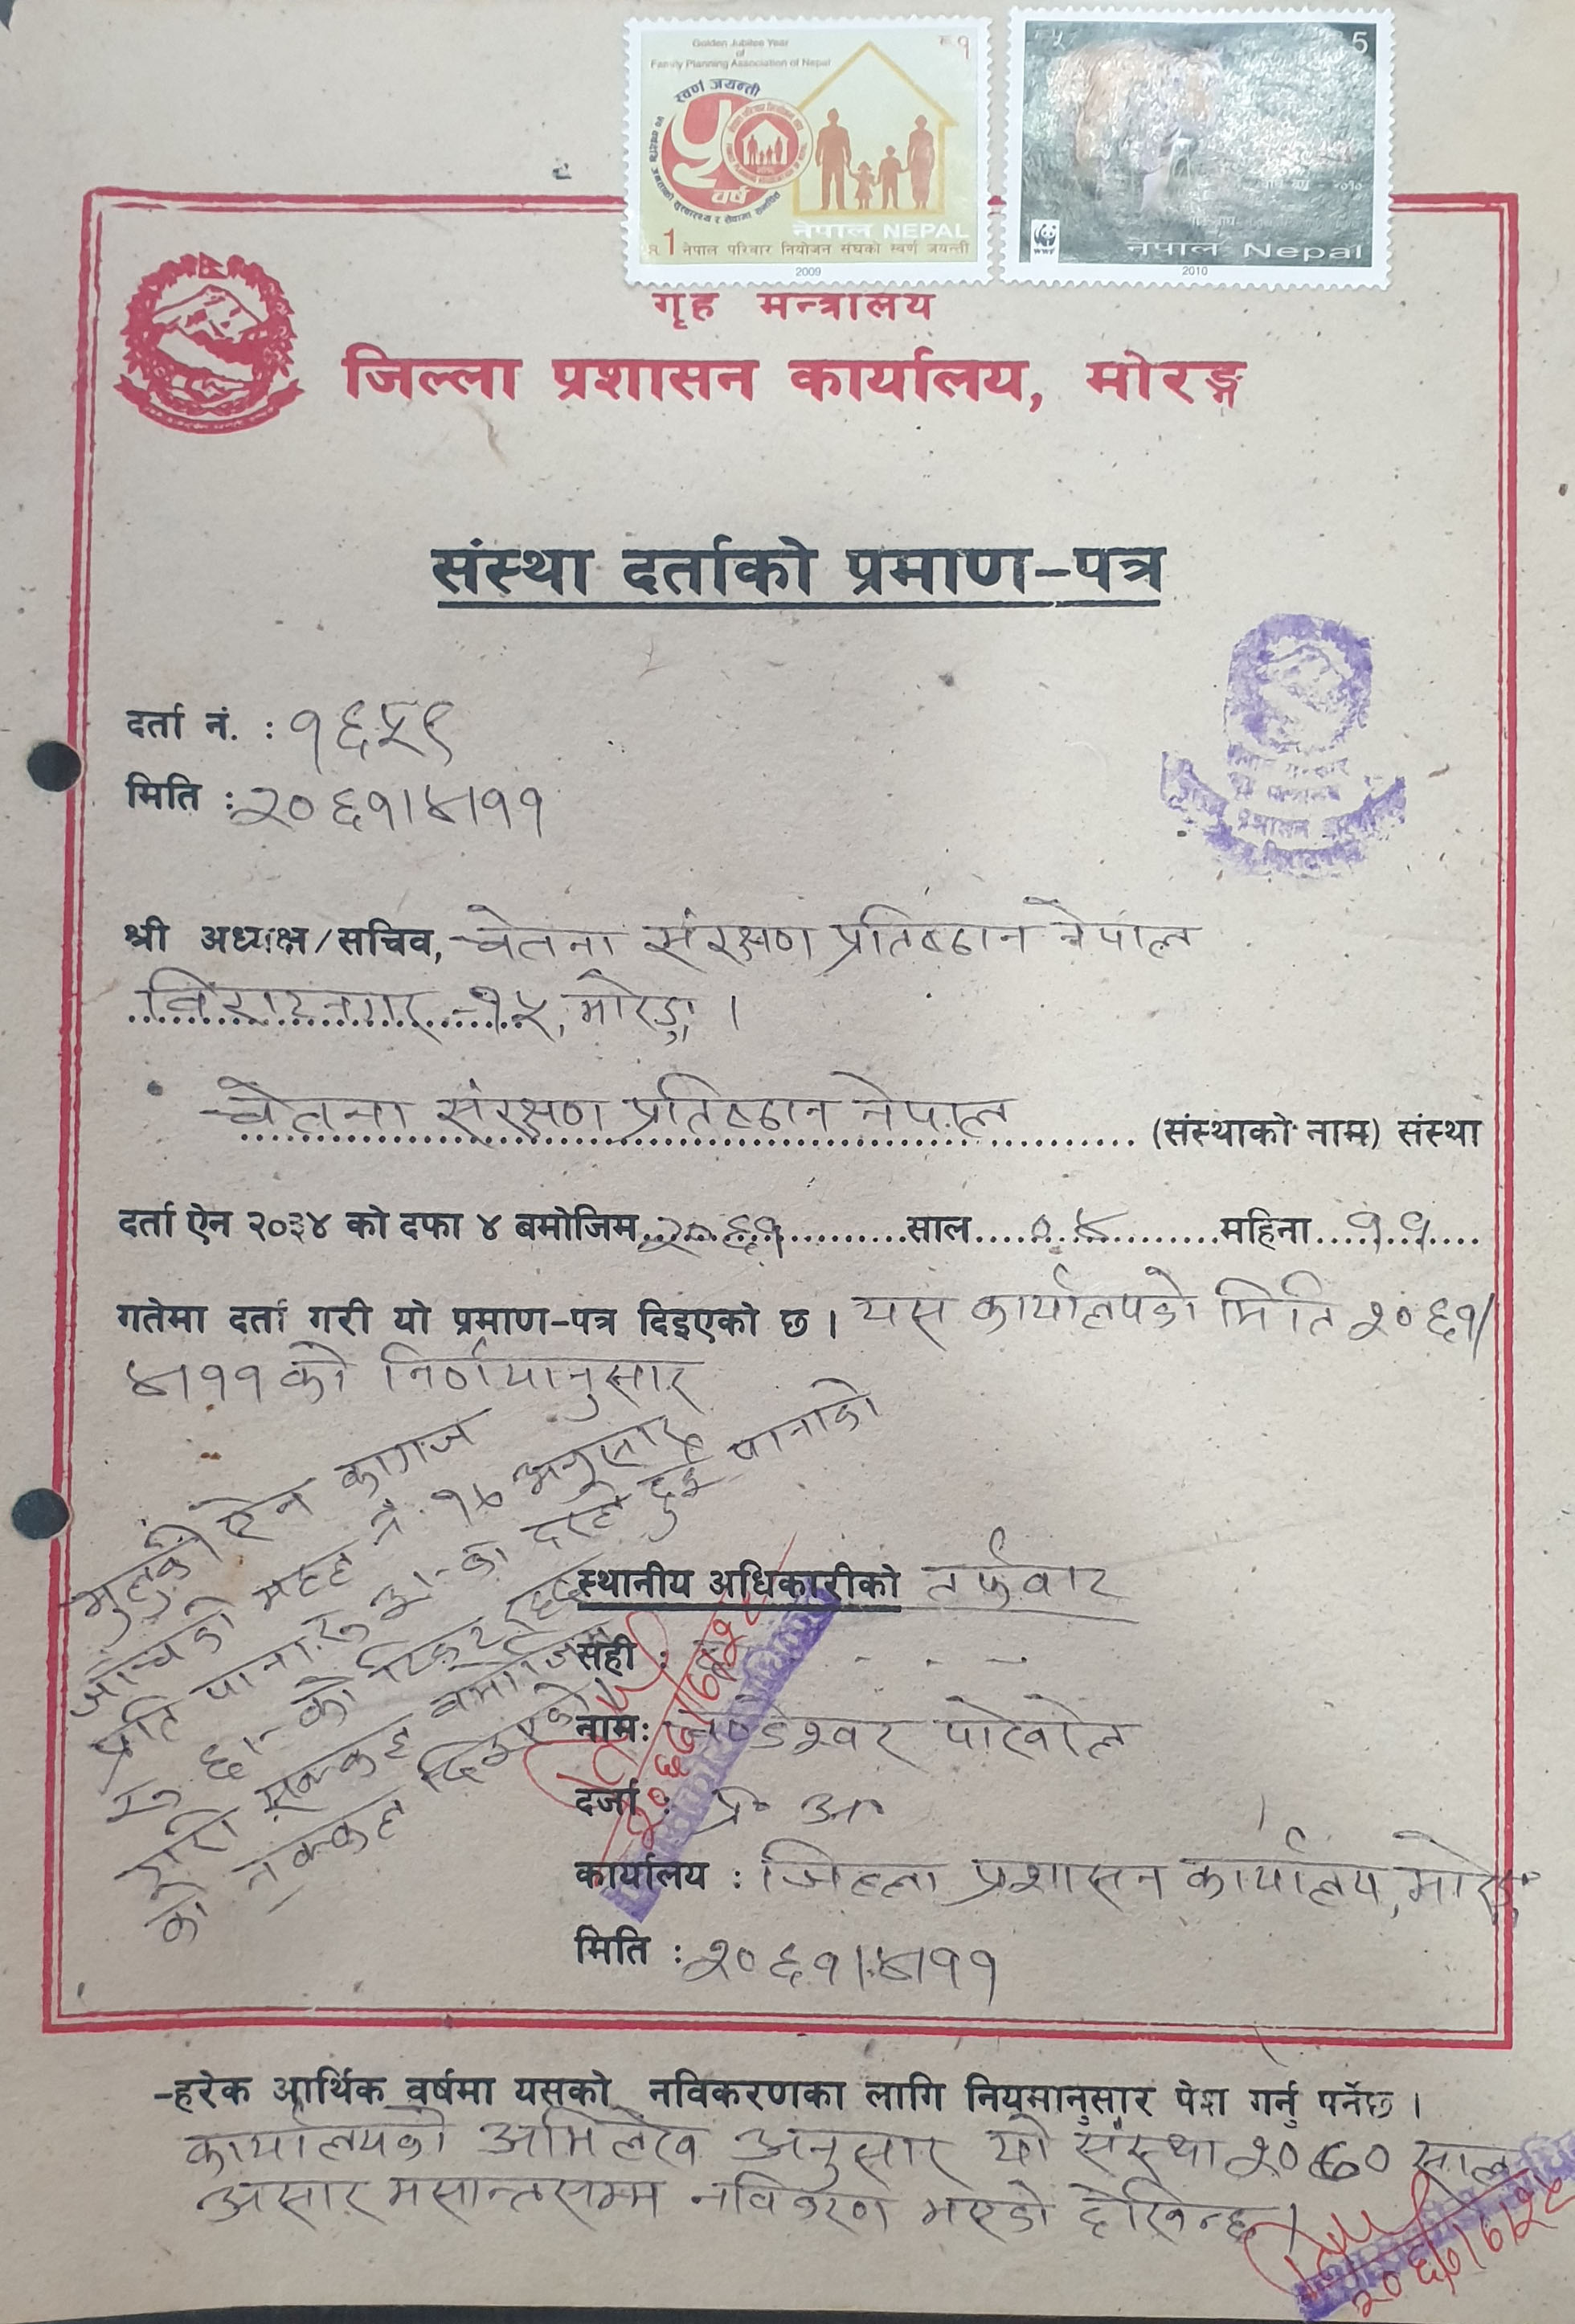 Golden Jubilee Year
of
Family Planning Association of Nepal
रु १
स्वर्ण जयन्ती
५ वर्ष
नेपाल NEPAL
रु. 1 नेपाल परिवार नियोजन संघको स्वर्ण जयन्ती
2009
5
WWF
नेपाल Nepal
2010
गृह मन्त्रालय
जिल्ला प्रशासन कार्यालय, मोरङ्ग
संस्था दर्ताको प्रमाण-पत्र
दर्ता नं. : १६५९
मिति : २०६१।४।११
श्री अध्यक्ष/सचिव, चेतना संरक्षण प्रतिष्ठान नेपाल
विराटनगर-१५, मोरङ्ग ।
चेतना संरक्षण प्रतिष्ठान नेपाल (संस्थाको नाम) संस्था
दर्ता ऐन २०३४ को दफा ४ बमोजिम २०६१ साल ०४ महिना ११
गतेमा दर्ता गरी यो प्रमाण-पत्र दिइएको छ । यस कार्यालयको मिति २०६१/
४।११ को निर्णयानुसार
मुलुकी ऐन कागज
जाँचको महल नं. १७ अनुसार
प्रति पाना रु ३।- का दरले दुई पानाको
रु ६।- को टिकट
गरी सक्कल बमोजिम
को नक्कल दिइएको ।
स्थानीय अधिकारीको तर्फबाट
सही :
नाम: पोखरेल
दर्जा : प्र. अ.
कार्यालय : जिल्ला प्रशासन कार्यालय, मोरङ्ग
मिति : २०६१।४।११
-हरेक आर्थिक वर्षमा यसको नविकरणका लागि नियमानुसार पेश गर्नु पर्नेछ ।
कार्यालयको अभिलेख अनुसार यो संस्था साल
असार मसान्तसम्म नविकरण भएको देखिन्छ ।